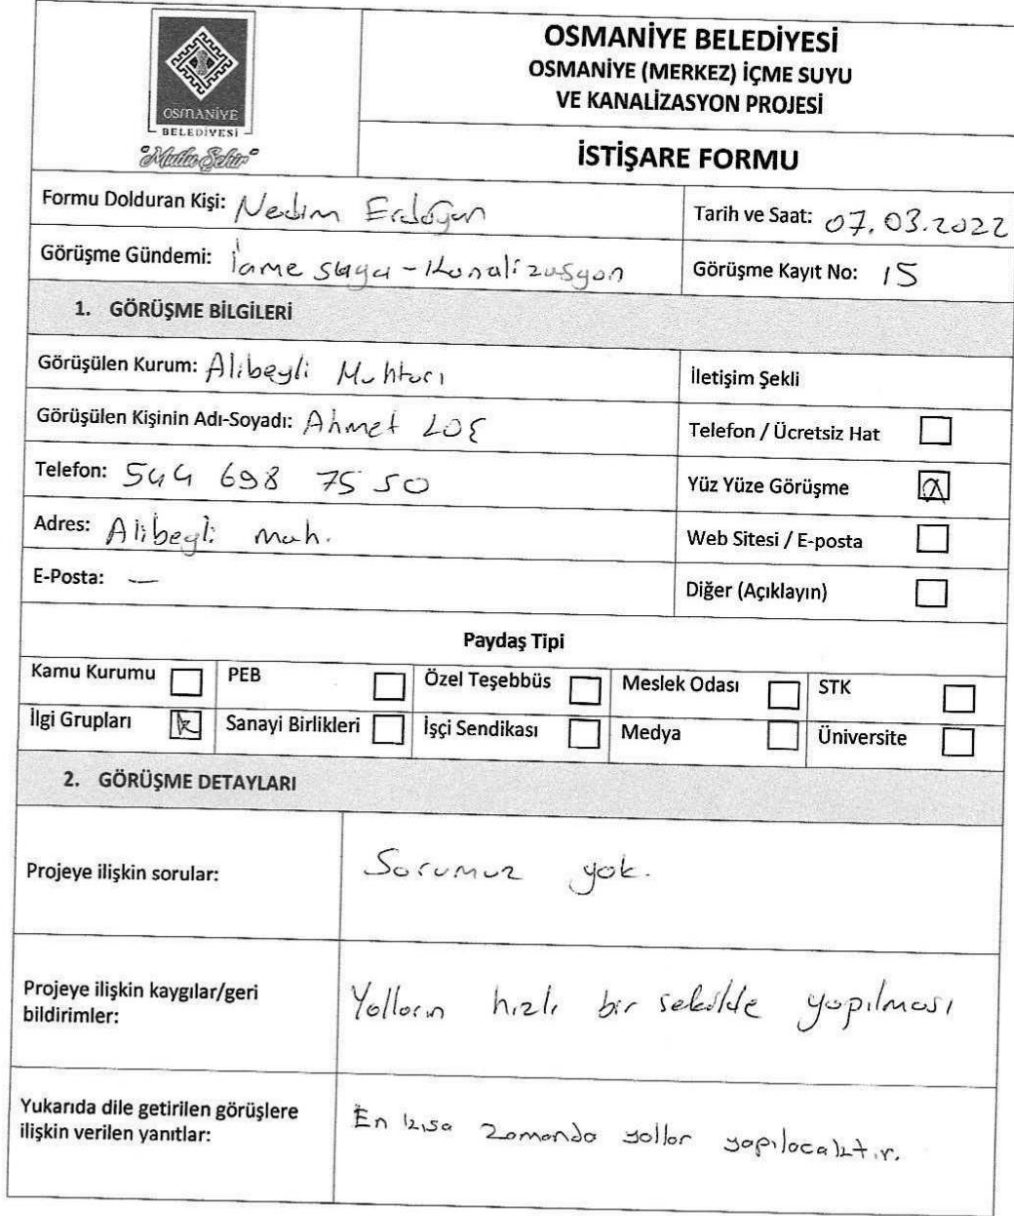 OSMANİYE
BELEDİYESİ
"Mutlu Şehir"
OSMANİYE BELEDİYESİ
OSMANİYE (MERKEZ) İÇME SUYU
VE KANALİZASYON PROJESİ
İSTİŞARE FORMU
Formu Dolduran Kişi: Nedim Erdoğan
Tarih ve Saat: 07.03.2022
Görüşme Gündemi: İçme suyu - Kanalizasyon
Görüşme Kayıt No: 15
1. GÖRÜŞME BİLGİLERİ
Görüşülen Kurum: Alibeyli Muhtarı
İletişim Şekli
Görüşülen Kişinin Adı-Soyadı: Ahmet
Telefon / Ücretsiz Hat
Telefon: 544 698 75 50
Yüz Yüze Görüşme
Adres: Alibeyli mah.
Web Sitesi / E-posta
E-Posta: —
Diğer (Açıklayın)
Paydaş Tipi
Kamu Kurumu PEB Özel Teşebbüs Meslek Odası STK
İlgi Grupları Sanayi Birlikleri İşçi Sendikası Medya Üniversite
2. GÖRÜŞME DETAYLARI
Projeye ilişkin sorular: Sorumuz yok.
Projeye ilişkin kaygılar/geri
bildirimler:
Yolların hızlı bir sekilde yapılması
Yukarıda dile getirilen görüşlere
ilişkin verilen yanıtlar:
En kısa zamanda yollar yapılacaktır.